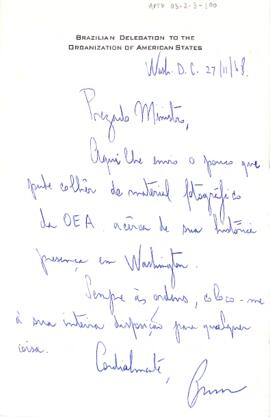 BRAZILIAN DELEGATION TO THE
ORGANIZATION OF AMERICAN STATES
Wash. D.C. 27/11/68.
Prezado Ministro,
Aqui lhe envio o pouco que
pude colhêr de material fotográfico
da OEA acêrca de sua histórica
presença em Washington.
Sempre às ordens, coloco-me
à sua inteira disposição para qualquer
coisa.
Cordialmente,